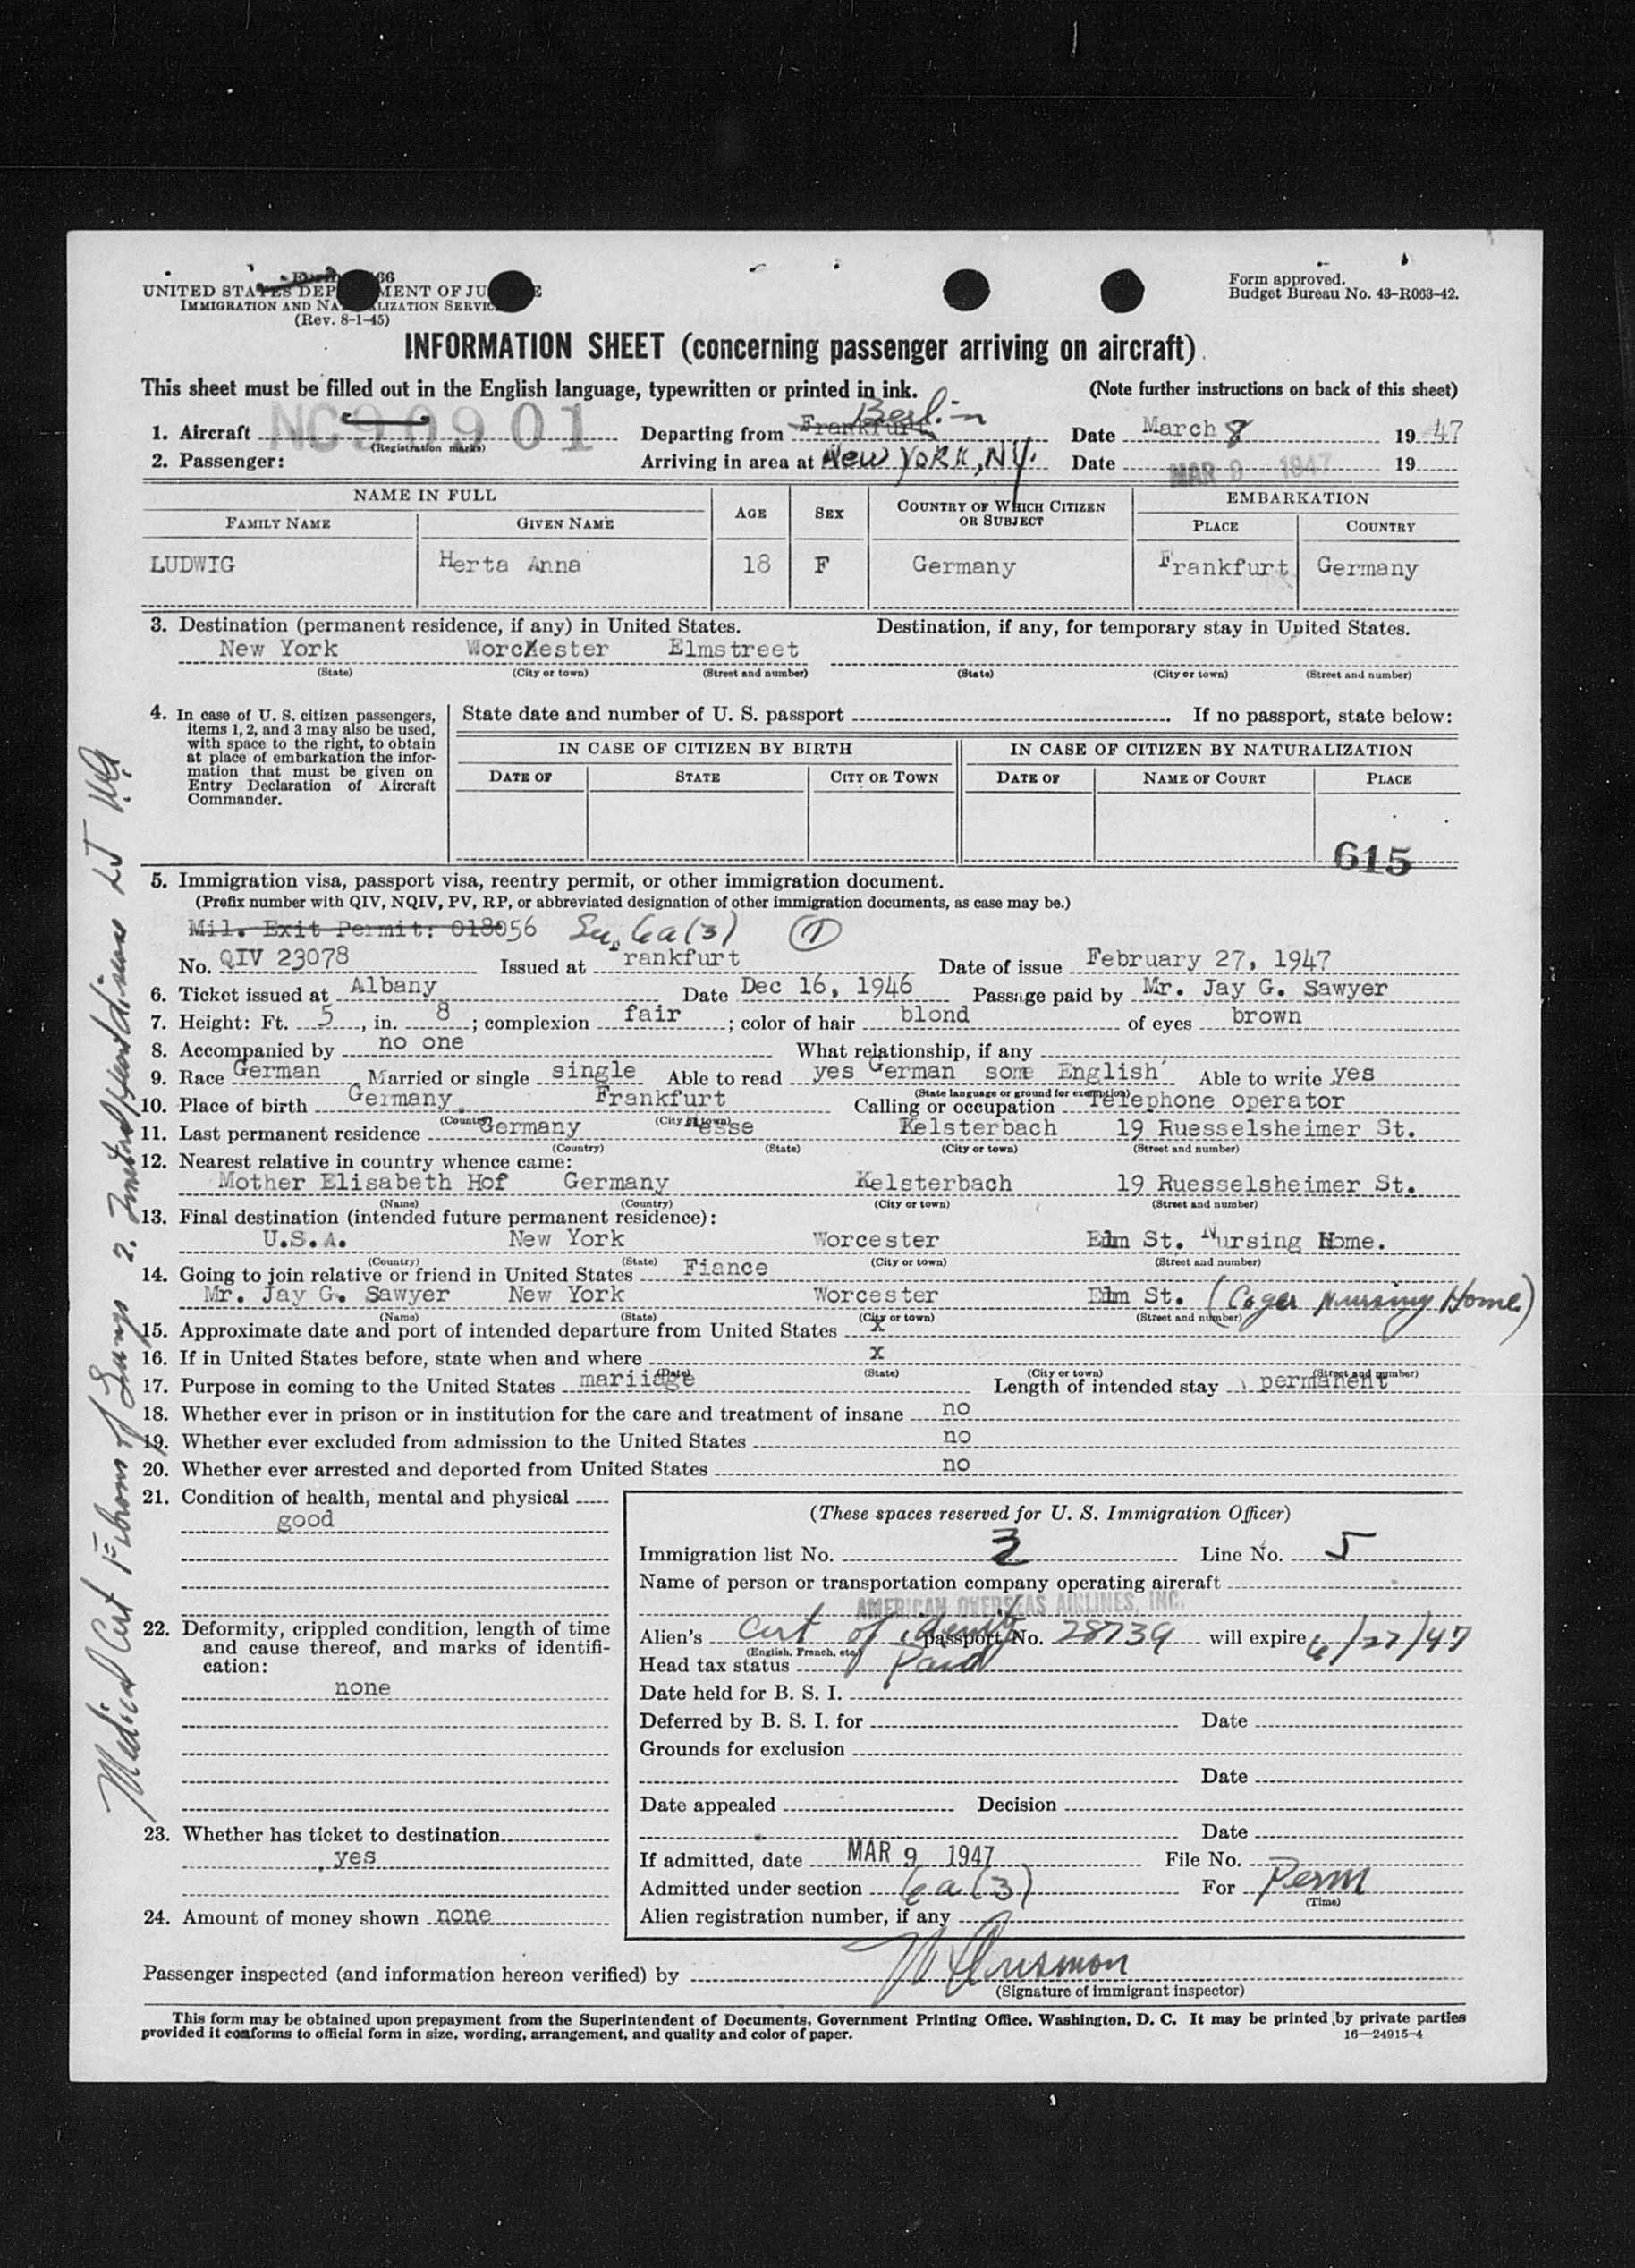 UNITED STATES DEP MENT OF JU E
IMMIGRATION AND NA ALIZATION SERVIC
(Rev. 8-1-45)
Form approved.
Budget Bureau No. 43-R063-42.
INFORMATION SHEET (concerning passenger arriving on aircraft)
This sheet must be filled out in the English language, typewritten or printed in ink. (Note further instructions on back of this sheet)
1. Aircraft NC90901 (Registration marks) Departing from Frankfurt Berlin Date March 8 1947
2. Passenger: Arriving in area at New York, NY. Date MAR 9 1947 19
NAME IN FULL AGE SEX COUNTRY OF WHICH CITIZEN OR SUBJECT EMBARKATION
FAMILY NAME GIVEN NAME PLACE COUNTRY
LUDWIG Herta Anna 18 F Germany Frankfurt Germany
3. Destination (permanent residence, if any) in United States. Destination, if any, for temporary stay in United States.
New York Worchester Elmstreet
(State) (City or town) (Street and number) (State) (City or town) (Street and number)
4. In case of U. S. citizen passengers,
items 1, 2, and 3 may also be used,
with space to the right, to obtain
at place of embarkation the infor-
mation that must be given on
Entry Declaration of Aircraft
Commander.
State date and number of U. S. passport If no passport, state below:
IN CASE OF CITIZEN BY BIRTH IN CASE OF CITIZEN BY NATURALIZATION
DATE OF STATE CITY OR TOWN DATE OF NAME OF COURT PLACE
615
5. Immigration visa, passport visa, reentry permit, or other immigration document.
(Prefix number with QIV, NQIV, PV, RP, or abbreviated designation of other immigration documents, as case may be.)
Mil. Exit Permit: 018056 6a(3) 1
No. QIV 23078 Issued at rankfurt Date of issue February 27, 1947
6. Ticket issued at Albany Date Dec 16, 1946 Passage paid by Mr. Jay G. Sawyer
7. Height: Ft. 5, in. 8; complexion fair; color of hair blond of eyes brown
8. Accompanied by no one What relationship, if any
9. Race German Married or single single Able to read yes German some English Able to write yes
(State language or ground for exemption)
10. Place of birth Germany Frankfurt Calling or occupation Telephone operator
(Country) (City or town)
11. Last permanent residence Germany Hesse Kelsterbach 19 Ruesselsheimer St.
(Country) (State) (City or town) (Street and number)
12. Nearest relative in country whence came:
Mother Elisabeth Hof Germany Kelsterbach 19 Ruesselsheimer St.
(Name) (Country) (City or town) (Street and number)
13. Final destination (intended future permanent residence):
U.S.A. New York Worcester Elm St. Nursing Home.
(Country) (State) (City or town) (Street and number)
14. Going to join relative or friend in United States Fiance
Mr. Jay G. Sawyer New York Worcester Elm St. (Coger Nursing Home)
(Name) (State) (City or town) (Street and number)
15. Approximate date and port of intended departure from United States x
16. If in United States before, state when and where x
(Date) (State) (City or town) (Street and number)
17. Purpose in coming to the United States mariiage Length of intended stay permanent
18. Whether ever in prison or in institution for the care and treatment of insane no
19. Whether ever excluded from admission to the United States no
20. Whether ever arrested and deported from United States no
21. Condition of health, mental and physical
good
22. Deformity, crippled condition, length of time
and cause thereof, and marks of identifi-
cation:
none
23. Whether has ticket to destination
yes
24. Amount of money shown none
(These spaces reserved for U. S. Immigration Officer)
Immigration list No. 3 Line No. 5
Name of person or transportation company operating aircraft
AMERICAN OVERSEAS AIRLINES, INC.
Alien's Cert of identity passport No. 28739 will expire 6/27/47
(English, French, etc.)
Head tax status Paid
Date held for B. S. I.
Deferred by B. S. I. for Date
Grounds for exclusion
Date
Date appealed Decision
Date
If admitted, date MAR 9 1947 File No.
Admitted under section 6a(3) For Perm
(Time)
Alien registration number, if any
Passenger inspected (and information hereon verified) by
(Signature of immigrant inspector)
This form may be obtained upon prepayment from the Superintendent of Documents, Government Printing Office, Washington, D. C. It may be printed by private parties
provided it conforms to official form in size, wording, arrangement, and quality and color of paper. 16—24915-4
Medical Cert Fibrosis of Lungs 2.